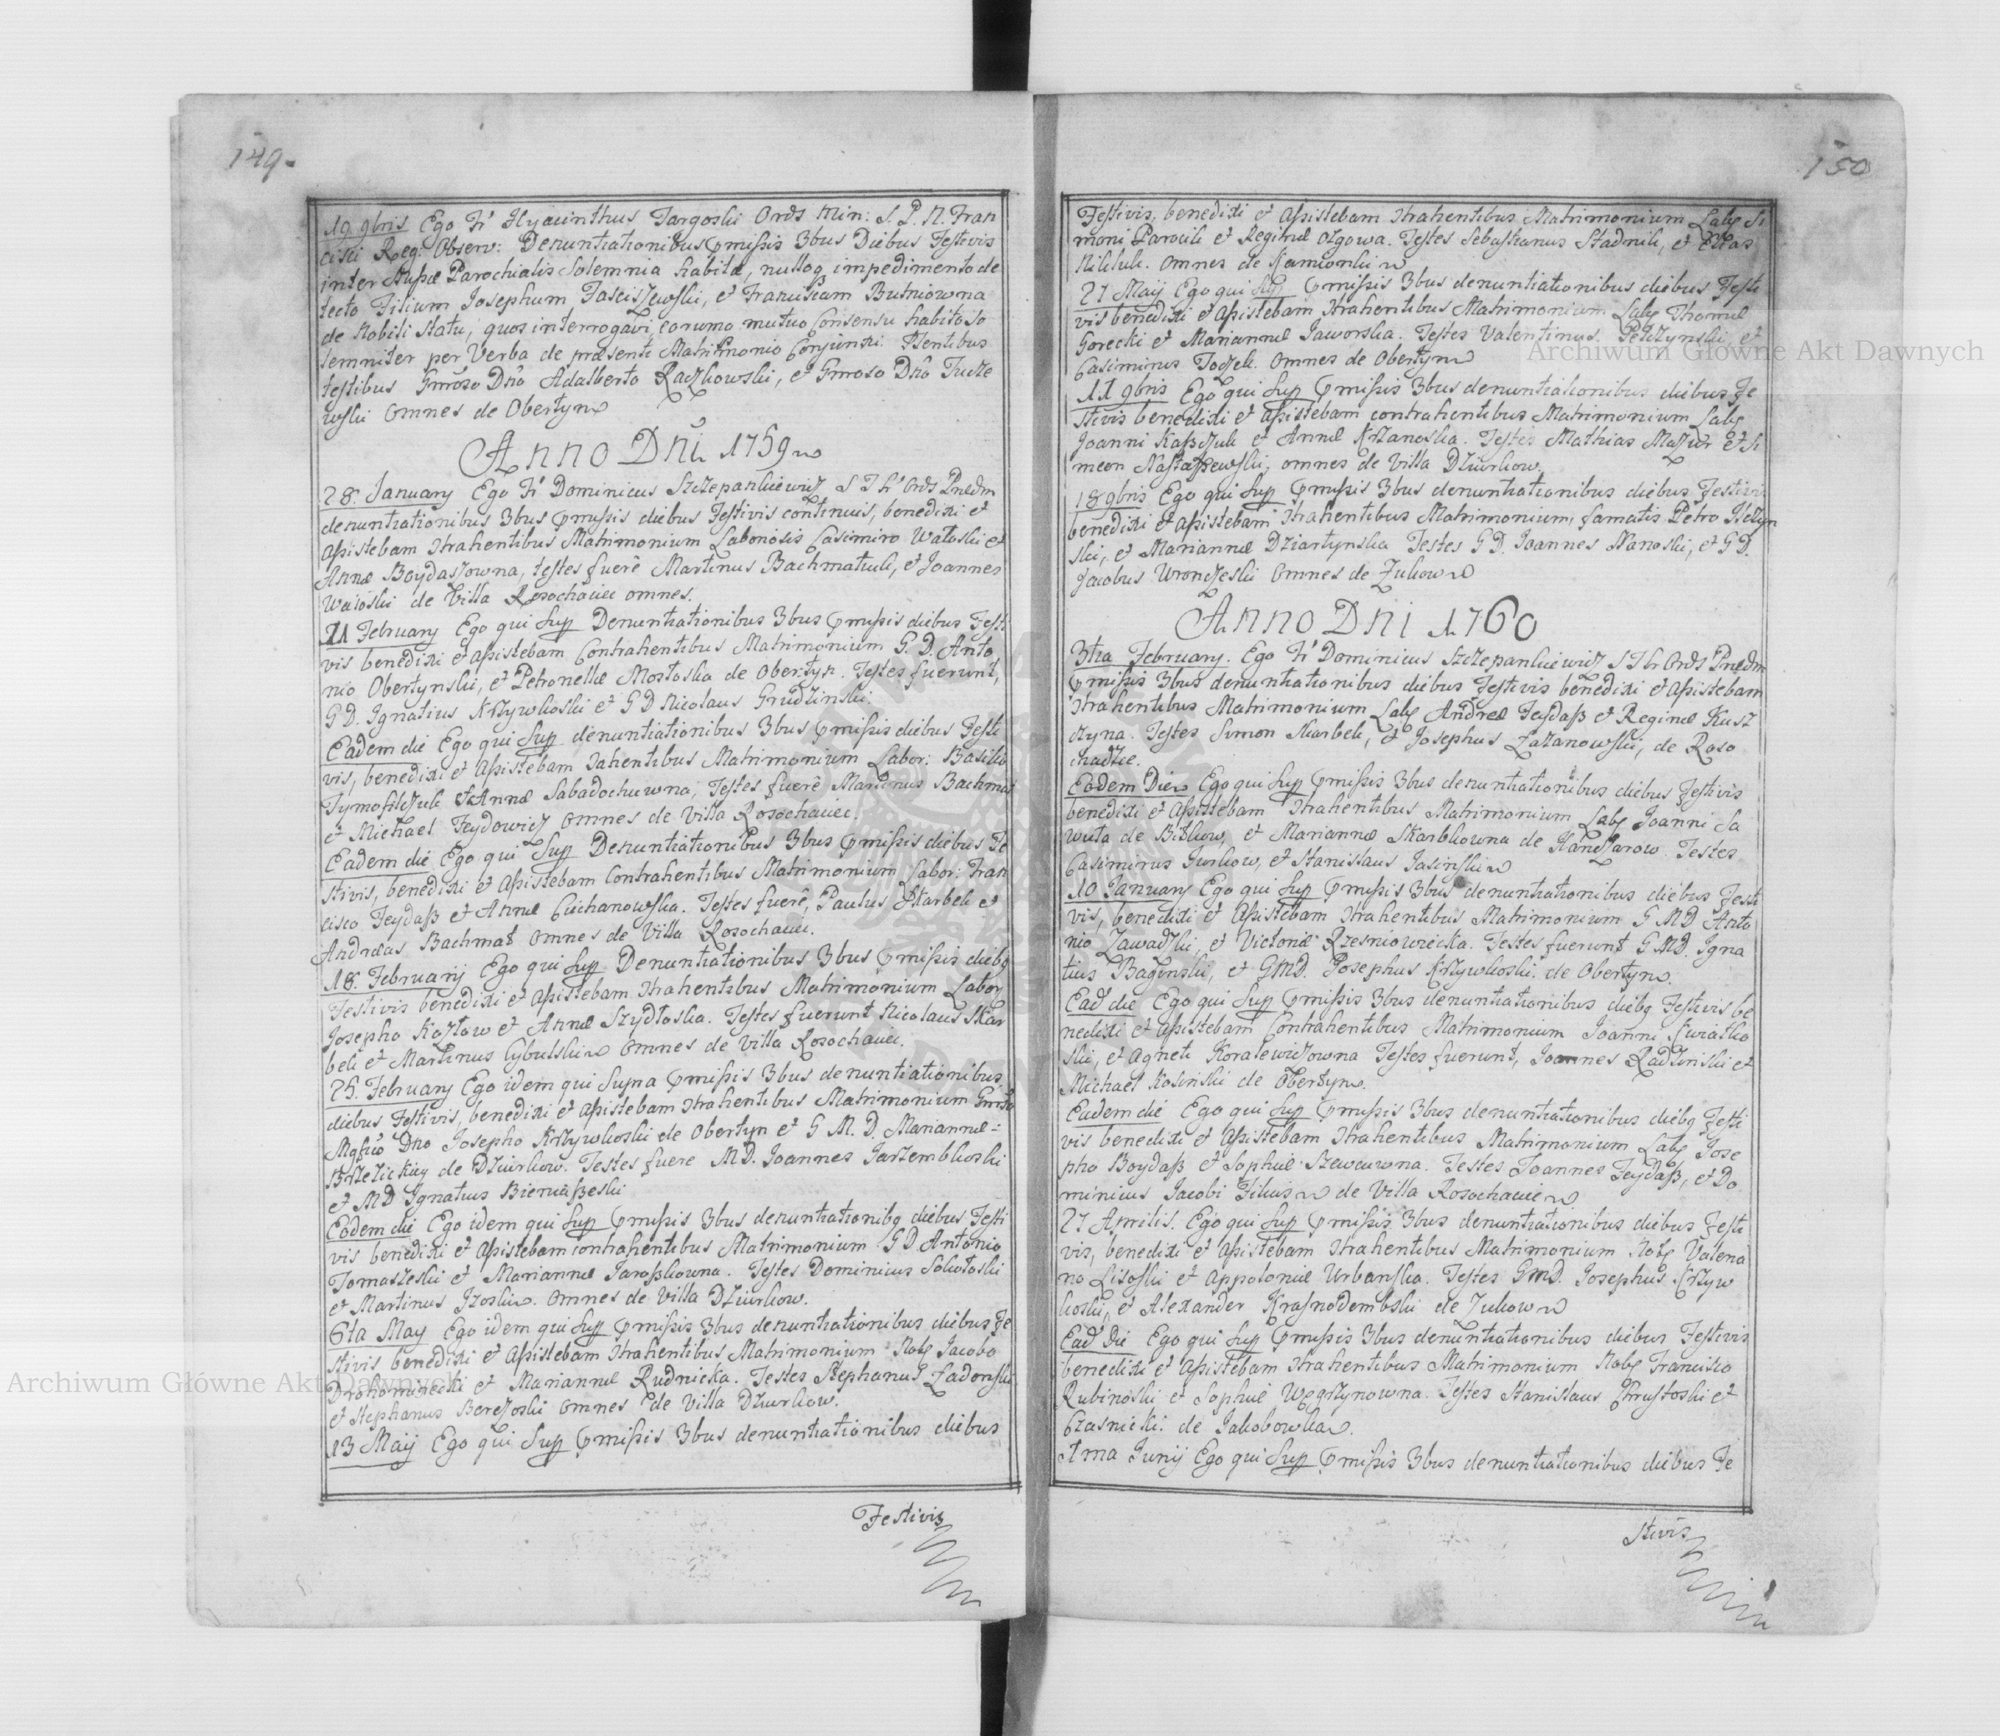 149.
19 9bris Ego Fr Hyacinthus Targoski Ords Min: S. P. N. Fran
cisci Reg. Observ: Denuntiationibus pmissis 3bus Diebus Festivis
inter Missae Parochialis Solemnia habitae, nulloq impedimento de
tecto Filium Josephum Tasciszewski, et Franciscam Butniowna
de Nobili Statu, quos interrogavi, eorumq mutuo Consensu habito so
lemniter per Verba de praesenti Matrimonio Conjunxi. Ptentibus
testibus Gnroso Dno Adalberto Raczkowski, et Gnroso Dno Tucze
wski omnes de Obertyn
Anno Dni 1759
28. January Ego Fr Dominicus Szczepankiewicz S T Lr Ords Praedm
denuntiationibus 3bus pmissis diebus Festivis continuis, benedixi et
Assistebam Ntrahentibus Matrimonium Laboriosis Casimiro Watoski et
Annae Boydaszowna, testes fuerê Martinus Bachmatiuk, et Joannes
Watoski de Villa Rosochaciec omnes.
11 February Ego qui Sup Denuntiationibus 3bus pmissis diebus Festi
vis benedixi et Assistebam Contrahentibus Matrimonium G. D. Anto
nio Obertynski, et Petronellae Mostoska de Obertyn. Testes fuerunt,
G D. Ignatius Krzywkoski et G D Nicolaus Grudzinski.
Eadem die Ego qui Sup denuntiationibus 3bus pmissis diebus Festi
vis, benedixi et Assistebam Ntrahentibus Matrimonium Labor: Basilio
Tymofilczuk et Annae Sabadochowna, Testes fuerê Martinus Bachmat
et Michael Feydowicz omnes de Villa Rosochaciec.
Eadem die Ego qui Sup Denuntiationibus 3bus pmissis diebus Fe
stivis, benedixi et Assistebam Contrahentibus Matrimonium Labor: Fran
cisco Feydasz et Annae Ciechanowska. Testes fuerê, Paulus Skarbek et
Andreas Bachmat omnes de Villa Rosochaciec.
18. February Ego qui Sup Denuntiationibus 3bus pmissis diebq
Festivis benedixi et Assistebam Ntrahentibus Matrimonium Labor
Josepho Kozlow et Annae Szydloska. Testes fuerunt Nicolaus Skar
bek et Martinus Cybulski omnes de Villa Rosochaciec.
25. February Ego idem qui Supra pmissis 3bus denuntiationibus
diebus Festivis, benedixi et Assistebam Ntrahentibus Matrimonium Gnroso
Mgfico Dno Josepho Krzywkoski de Obertyn et G. M. D. Mariannae
Brzezickiey de Dzurkow. Testes fuere MD. Joannes Jarzembkoski
et MD Ignatius Bieniaszeski
Eadem die Ego idem qui Sup pmissis 3bus denuntiationibq diebus Festi
vis benedixi et Assistebam contrahentibus Matrimonium G D Antonio
Tomaszeski et Mariannae Jaroszkowna. Testes Dominicus Sokołoski
et Martinus Izoski. Omnes de Villa Dziurkow.
6ta May Ego idem qui Sup pmissis 3bus denuntiationibus diebus Fe
stivis benedixi et Assistebam Ntrahentibus Matrimonium Nobq Jacobo
Drohomirecki et Mariannae Rudnicka. Testes Stephanus Zadorski
et Stephanus Berezoski omnes de Villa Dziurkow.
13 Maij Ego qui Sup pmissis 3bus denuntiationibus diebus
Festivis
150
Festivis, benedixi et Assistebam Ntrahentibus Matrimonium Labq Si
moni Parocik et Reginae Ozgowa. Testes Sebastianus Stadnik, et Elias
Nikituk. Omnes de Kamionki
27 Maij Ego qui Sup pmissis 3bus denuntiationibus diebus Festi
vis benedixi et Assistebam Ntrahentibus Matrimonium Labq Thomae
Gorecki et Mariannae Jaworska. Testes Valentinus Pełczynski, et
Casimirus Toczek. Omnes de Obertyn
11 9bris Ego qui Sup pmissis 3bus denuntiationibus diebus Fe
stivis benedixi et Assistebam contrahentibus Matrimonium Labq
Joanni Kaszczuk et Annae Krzanoska. Testes Mathias Mazur et Si
meon Nastaszewski, omnes de Villa Dziurkow.
18 9bris Ego qui Sup pmissis 3bus denuntiationibus diebus Festivis
benedixi et Assistebam Ntrahentibus Matrimonium, famatis Petro Ilczyn
ski, et Mariannae Dziartynska Testes G D. Joannes Nanoski, et G D.
Jacobus Wronczeski omnes de Zukow
Anno Dni 1760
3tia February. Ego Fr Dominicus Szczepankiewicz S T Lr Ords Praedm
pmissis 3bus denuntiationibus diebus Festivis benedixi et Assistebam
Ntrahentibus Matrimonium Labq Andreae Feydasz et Reginae Kusz
czyna. Testes Simon Skarbek, et Josephus Łazanowski, de Roso
chadzie.
Eadem Die Ego qui Sup pmissis 3bus denuntiationibus diebus Festivis
benedixi et Assistebam Ntrahentibus Matrimonium Labq Joanni Sa
wuta de Bitkow, et Mariannae Skarbkowna de Hanczarow. Testes
Casimirus Jurkow, et Stanislaus Jasinski
10 January Ego qui Sup pmissis 3bus denuntiationibus diebus Festi
vis, benedixi et Assistebam Ntrahentibus Matrimonium G MD Anto
nio Zawadzki, et Victoriae Rzesniowiecka. Testes fuerunt G MD. Igna
tius Baginski, et GMD. Josephus Krzywkoski. de Obertyn.
Ead die Ego qui Sup pmissis 3bus denuntiationibus diebq Festivis be
nedixi et Assistebam Contrahentibus Matrimonium Joanni Kwiatko
ski, et Agneti Koralewiczowna Testes fuerunt, Joannes Radzinski et
Michael Kosinski de Obertyn.
Eadem die Ego qui Sup pmissis 3bus denuntiationibus diebq Festi
vis benedixi et Assistebam Ntrahentibus Matrimonium Labq Jose
pho Boydasz et Sophiae Szewcuwna. Testes Joannes Feydasz, et Do
minicus Jacobi Filius de Villa Rosochaciec
27 Aprilis. Ego qui Sup pmissis 3bus denuntiationibus diebus Festi
vis, benedixi et Assistebam Ntrahentibus Matrimonium Nobq Valeria
no Lisoski et Appoloniae Urbanska. Testes GMD. Josephus Krzyw
koski, et Alexander Krasnodembski de Zukow
Ead Die Ego qui Sup pmissis 3bus denuntiationibus diebus Festivis
benedixi et Assistebam Ntrahentibus Matrimonium Nobq Francisco
Rubinoski et Sophiae Węgrzynowna. Testes Stanislaus Chrustoski et
Czasnicki. de Jakobowka.
1ma Junij Ego qui Sup pmissis 3bus denuntiationibus diebus Fe
stivis
Archiwum Główne Akt Dawnych
Archiwum Główne Akt Dawnych